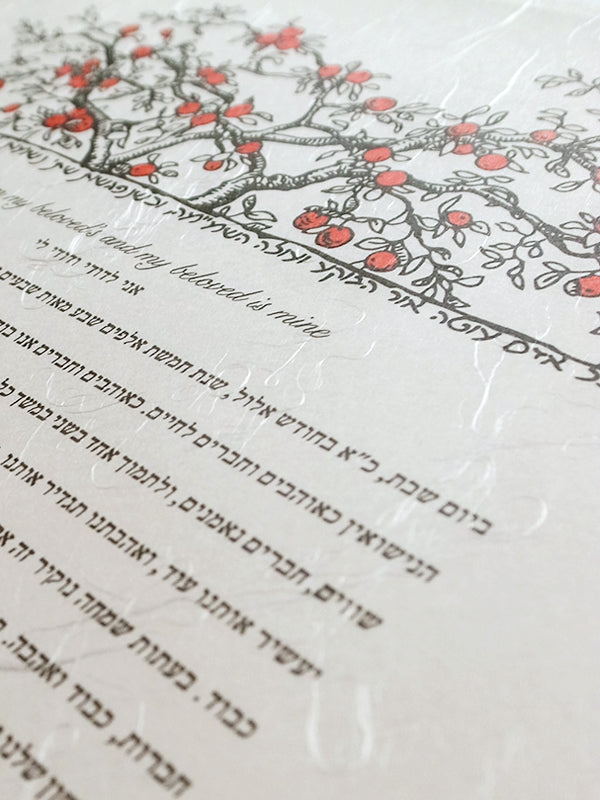 אדם עוטה אור הבוקע ועולה השמיימה וכשנפגשות שתי נשמות
my beloved's and my beloved is mine
אני לדודי ודודי לי
ביום שבת, כ"א בחודש אלול, שנת חמשת אלפים שבע מאות שבעים
הנישואין כאוהבים וחברים לחיים. כאוהבים וחברים אנו
שווים, חברים נאמנים, ולתמוך אחד בשני במשך כל
יעשיר אותנו עוד, ואהבתנו תגדיר אותנו
כבוד. בעתות שמחה נוקיר זה את
חברות, כבוד ואהבה.
שלנו